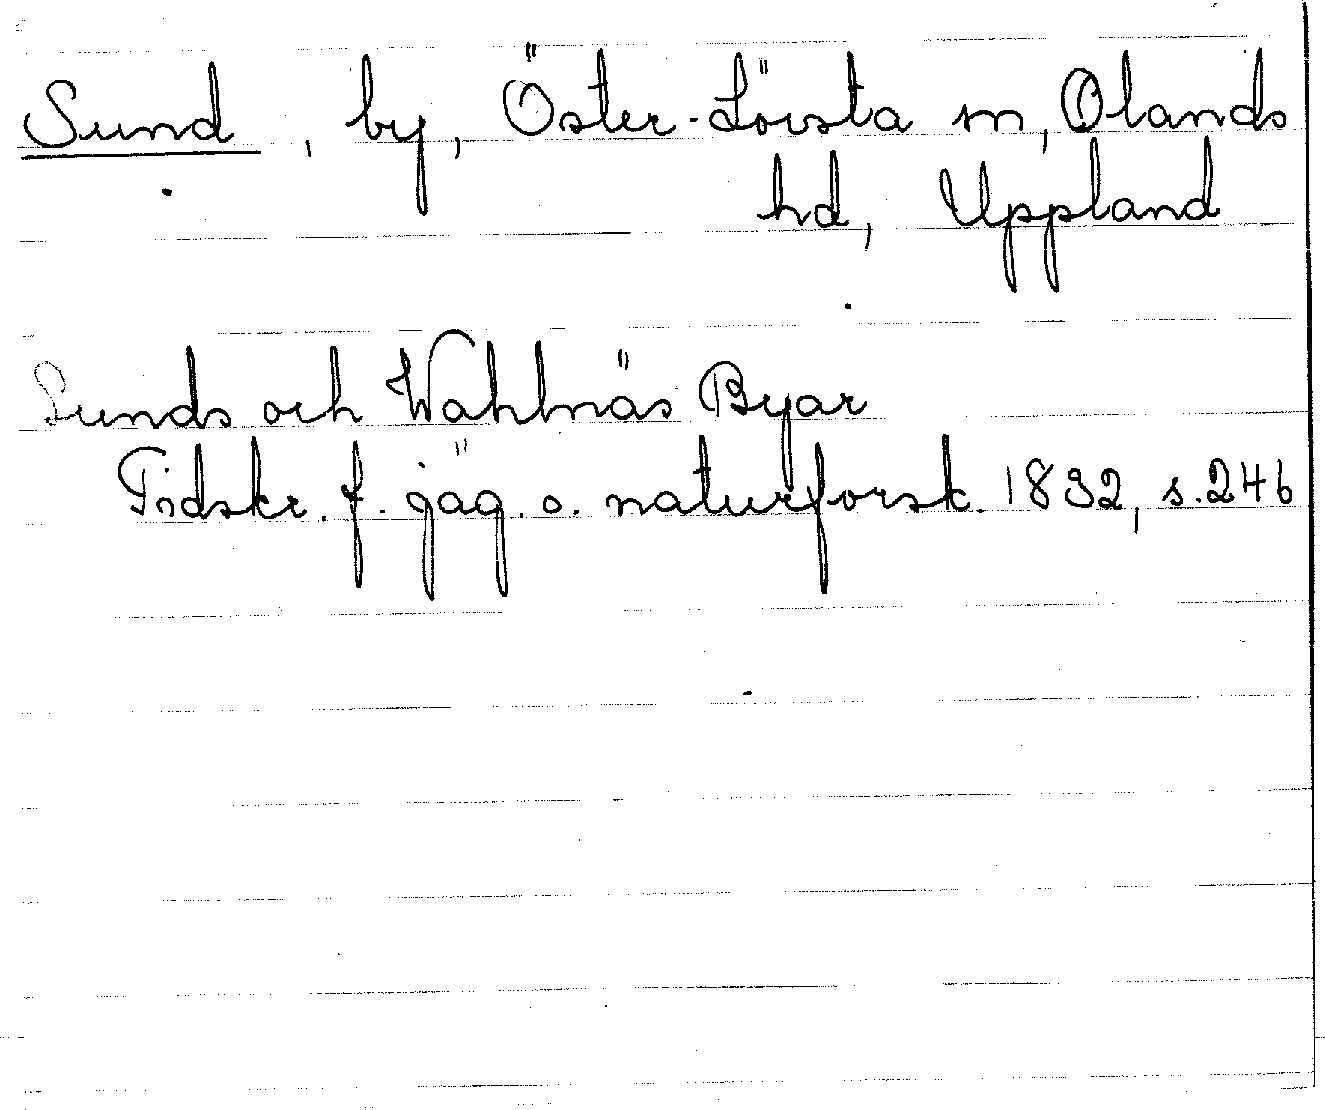 Sund, by, Öster-Lövsta sn, Olands
hd, Uppland
Sunds och Wahlnäs Byar
Tidskr. f. jäg. o. naturforsk. 1832, s. 246